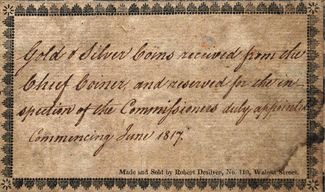 Gold & Silver Coins received from the
Chief Coiner, and reserved for the in-
spection of the Commissioners duly appointed
Commencing June 1817.
Made and Sold by Robert Desilver, No. 110, Walnut Street.